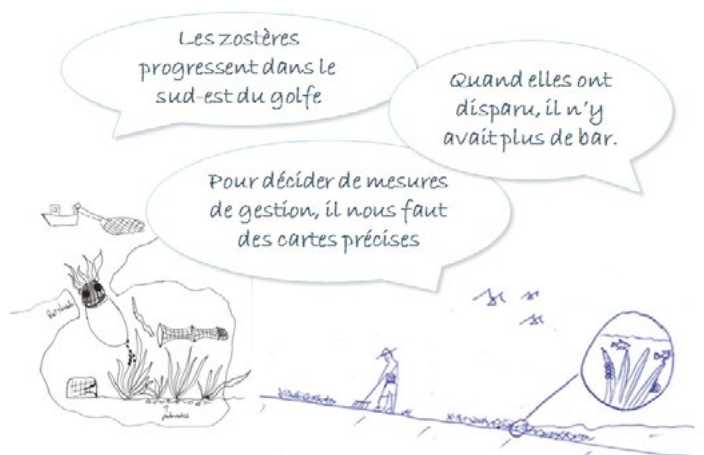 Les zostères
progressent dans le
sud-est du golfe
Quand elles ont
disparu, il n'y
avait plus de bar.
Pour décider de mesures
de gestion, il nous faut
des cartes précises